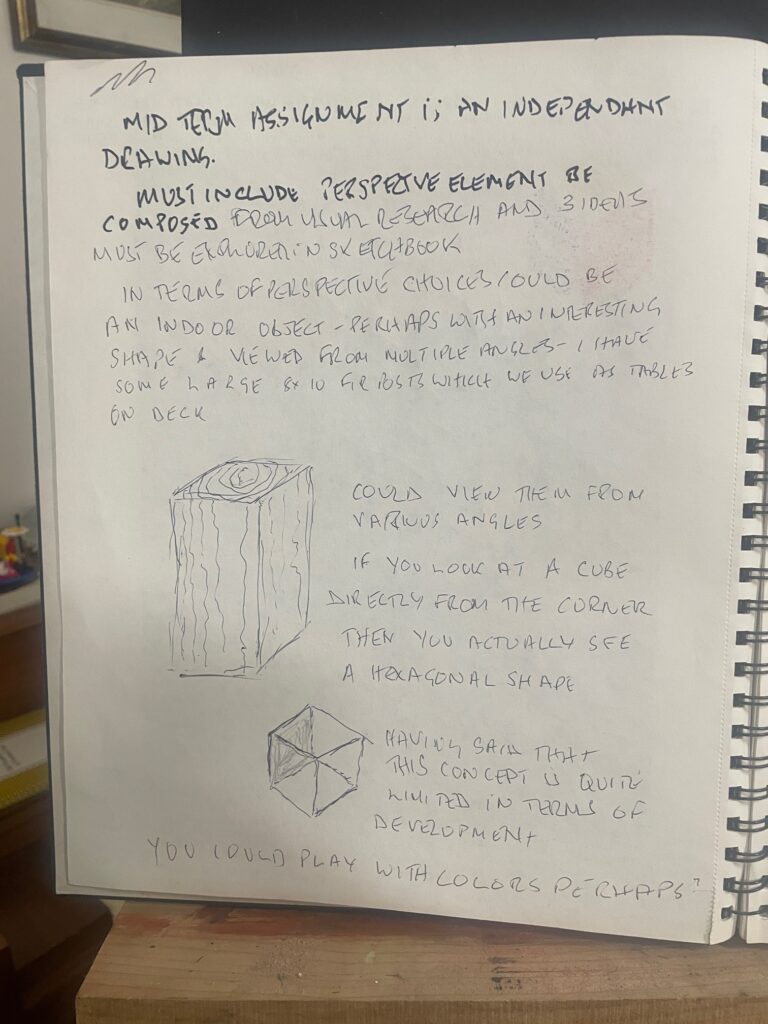 MID TERM ASSIGNMENT is AN INDEPENDANT
DRAWING.
MUST INCLUDE PERSPECTIVE ELEMENT BE
COMPOSED FROM USUAL RESEARCH AND 3 IDEAS
MUST BE EXPLORED IN SKETCHBOOK
IN TERMS OF PERSPECTIVE CHOICES COULD BE
AN INDOOR OBJECT - PERHAPS WITH AN INTERESTING
SHAPE & VIEWED FROM MULTIPLE ANGLES - I HAVE
SOME LARGE 8x10 FIR POSTS WHICH WE USE AS TABLES
ON DECK
COULD VIEW THEM FROM
VARIOUS ANGLES
IF YOU LOOK AT A CUBE
DIRECTLY FROM THE CORNER
THEN YOU ACTUALLY SEE
A HEXAGONAL SHAPE
HAVING SAID THAT
THIS CONCEPT IS QUITE
LIMITED IN TERMS OF
DEVELOPMENT
YOU COULD PLAY WITH COLORS PERHAPS?